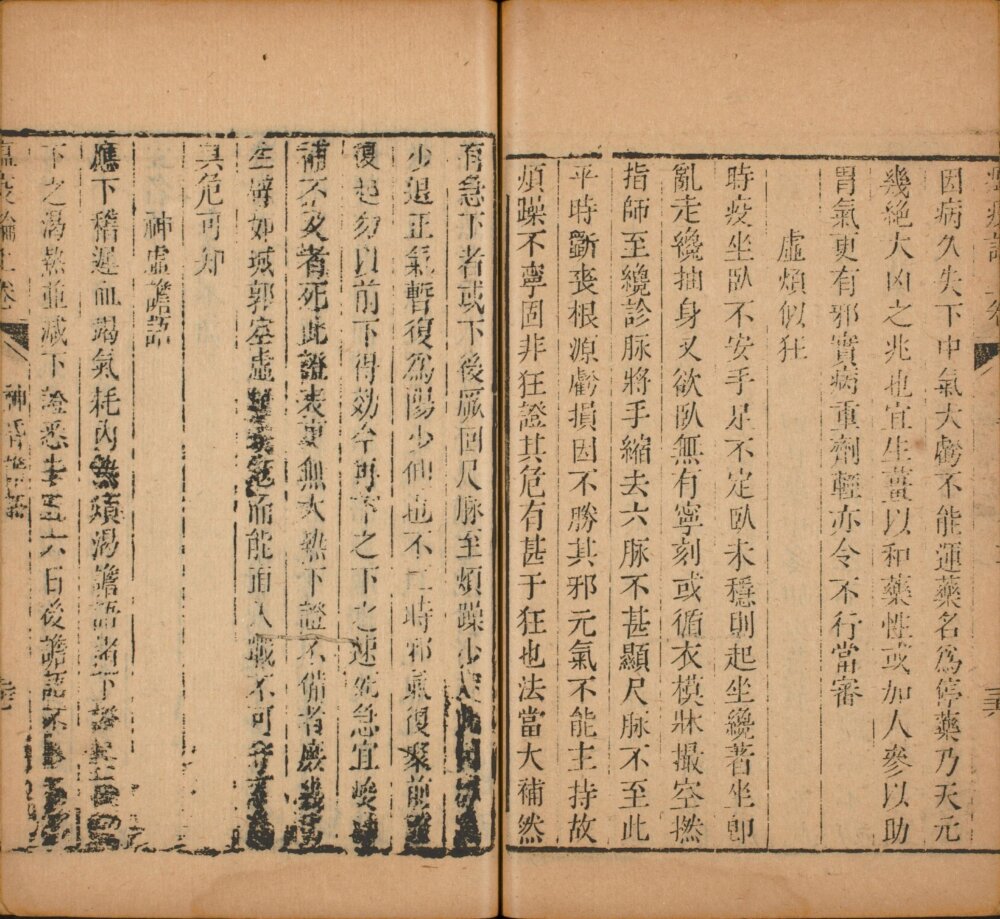 因病久失下中氣大虧不能運藥名爲停藥乃天元
幾絕大凶之兆也宜生薑以和藥性或加人參以助
胃氣更有邪實病重劑輕亦令不行當審
虛煩似狂
時疫坐臥不安手足不定臥未穩則起坐纔著坐卽
亂走纔抽身又欲臥無有寧刻或循衣模牀撮空撚
指師至纔診脉將手縮去六脉不甚顯尺脉不至此
平時斷喪根源虧損因不勝其邪元氣不能主持故
煩躁不寧固非狂證其危有甚于狂也法當大補然
有急下者或下後厥回尺脉至煩躁少定此因
少退正氣暫復爲陽少伸也不二時邪氣復聚前
復起勿以前下得効今再下之下之速死急宜峻
補補不及者死此證表裏無大熱下證不備者庶幾
生譬如城郭空虛雖殘而能直入戰不可守
其危可知
神虛譫語
應下稽遲血竭氣耗內熱煩渴譫語諸下證具
下之渴熱並減下證悉去五六日後譫語不
瘟疫論上卷
神虛譫語